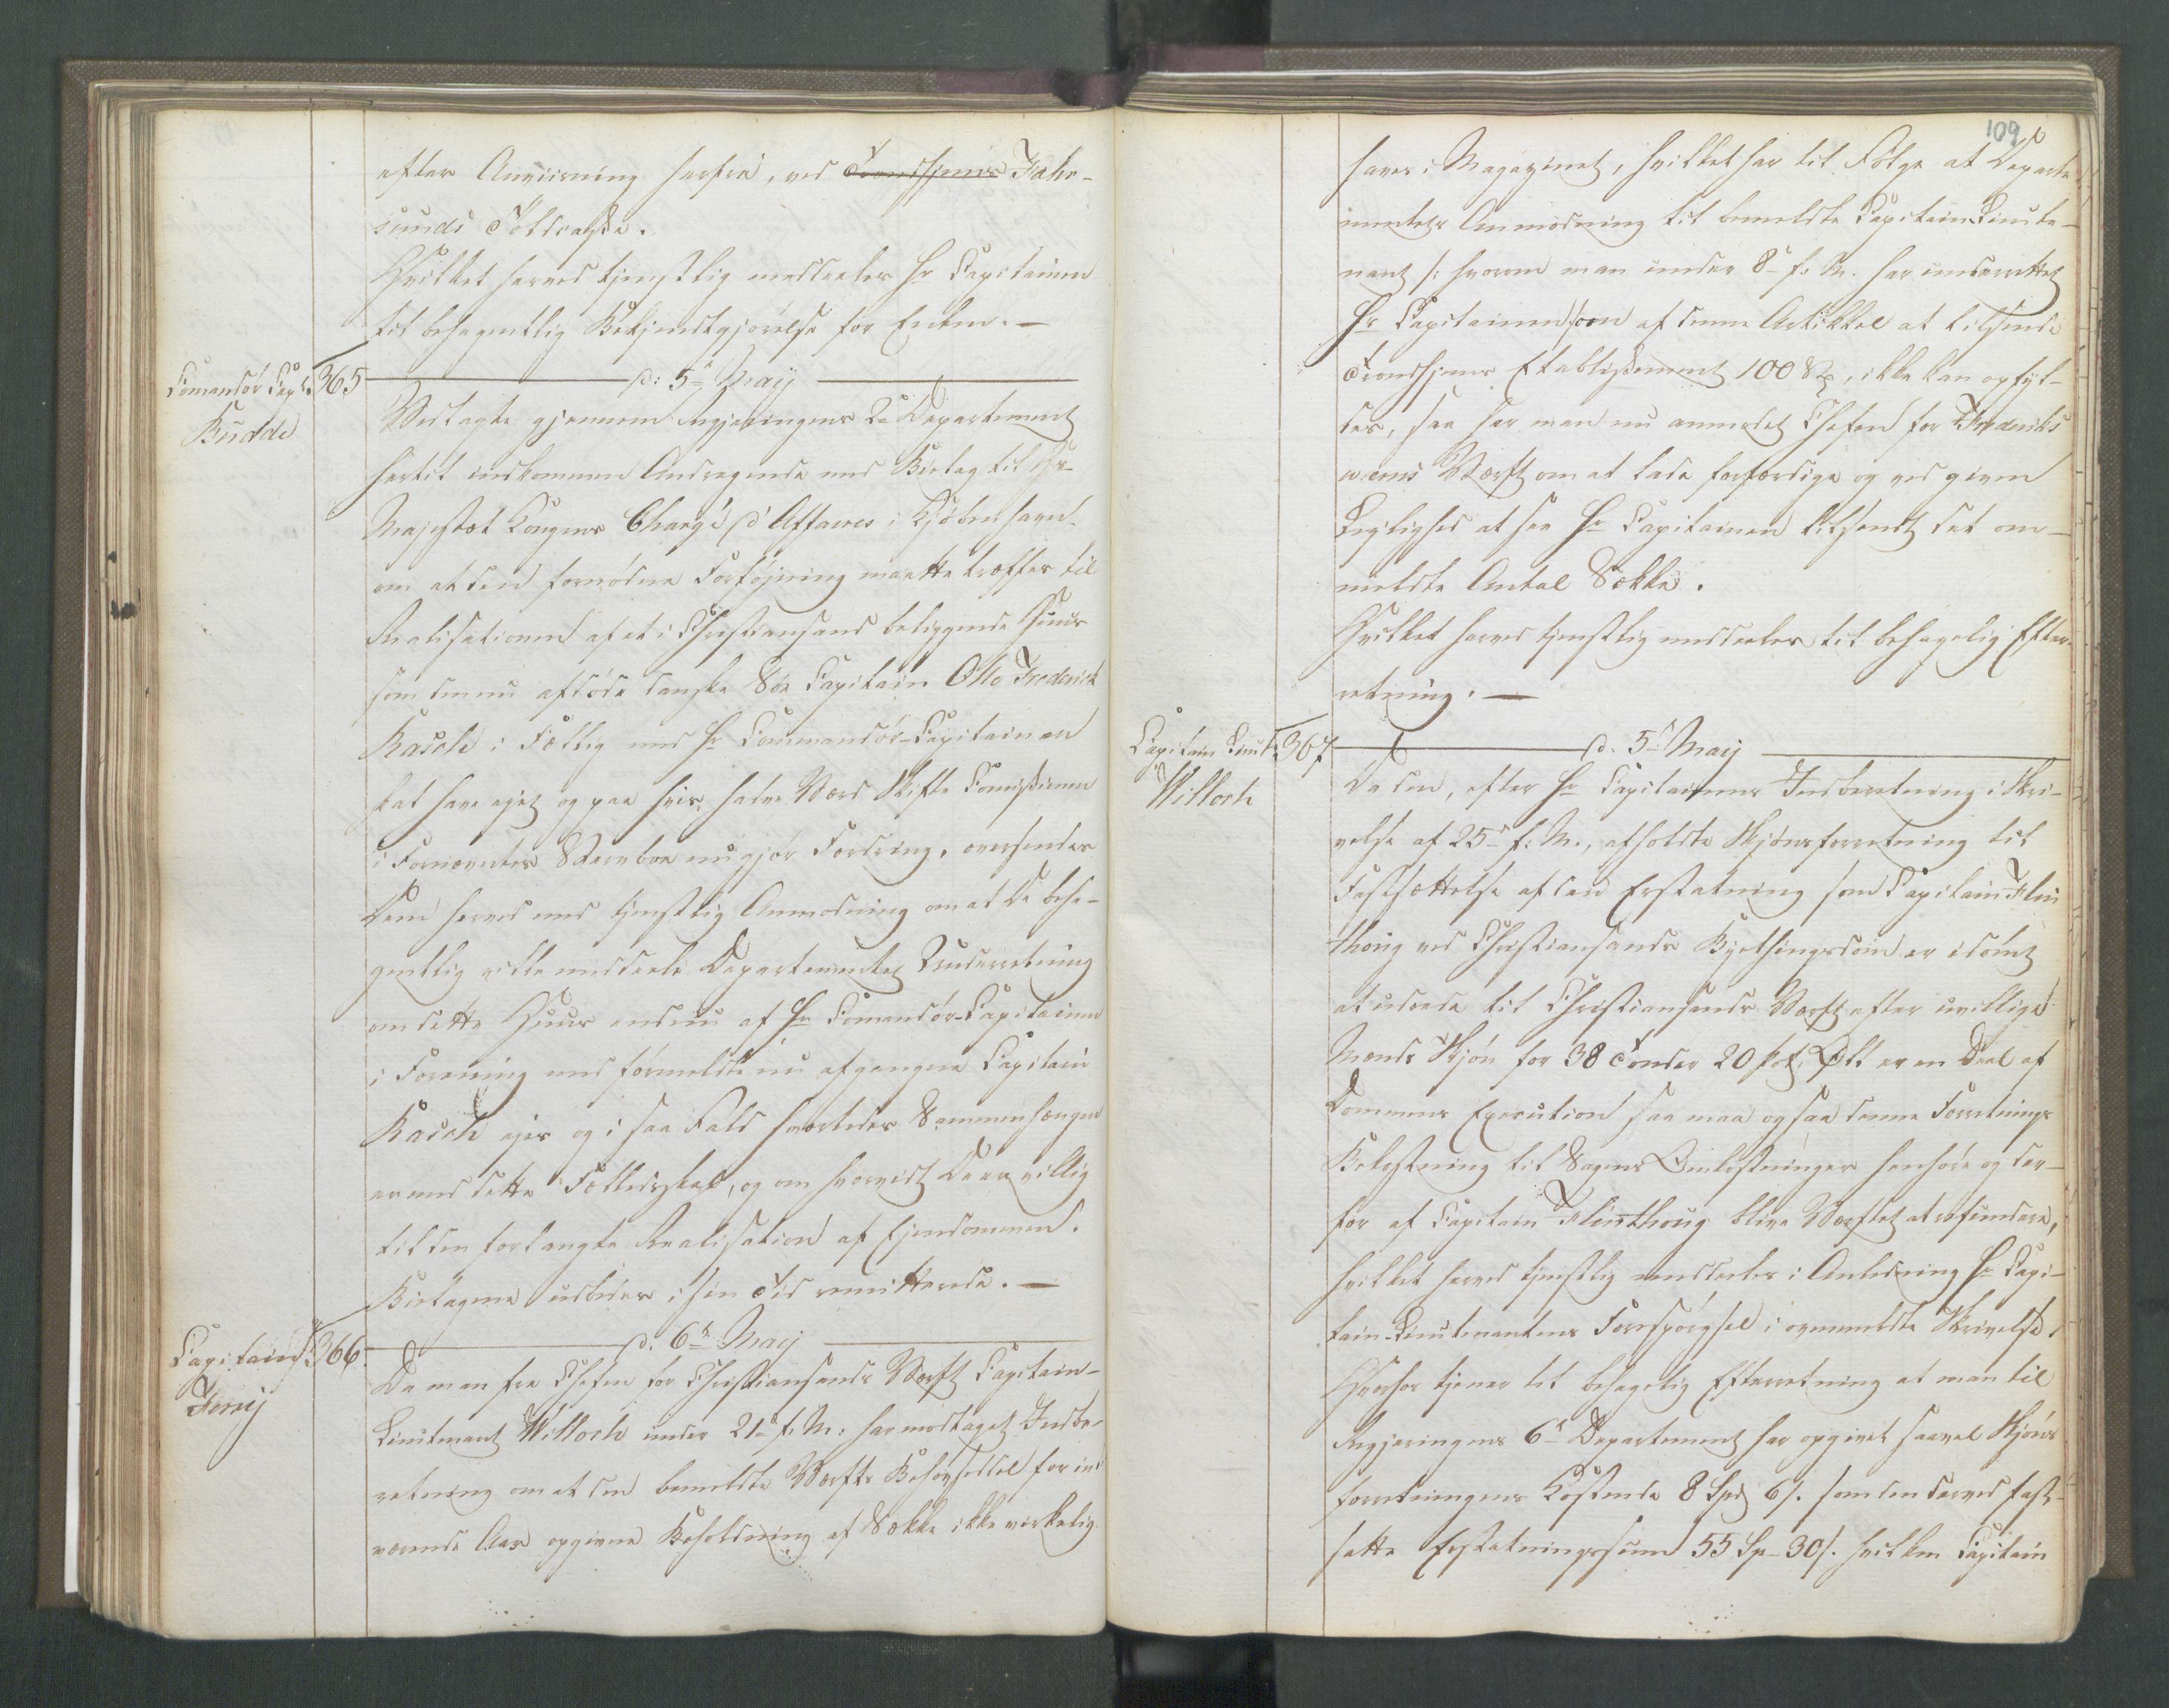 efter Anviisning herfra, ved Trondhjems Fahr-
sunds Toldcasse.
Hvilket herved tjenstlig meddeeles Hr Capitainen
til behagentlig Bekjendtgjørelse for Enken. —
Comandör Capt.
Budde
365
d: 5te Maij
Vedlagte gjennem Regjeringens 2 Departement
hertil indkomne Andragende med Bielag til Hs.
Majestæt Kongens Chargé d'Affaires i Kjøbenhavn
om at den fornødne Forføjning maatte træffes til
Realisationen af et i Christiansand beliggende Huus
som den nu afdøde danske Söe Capitain Otto Frederick
Rasch i Fællig med Hr Commandör-Capitainen
skal have ejet og paa hvis halve Værd Skifte Comissionen
i Fornævntes Sterveboe nu gjør Fordring, oversendes
Dem herved med tjenstlig Anmodning om at De beha-
gentlig vilde meddeele Departementet Underretning
om dette Huus endnu af Hr Comandör-Capitainen
i Forening med formeldte nu afgangne Capitain
Rasch ejes og i saa Fald hvorledes Sammenhængen
er med dette Fælledsskab, og om hvorvidt De er villig
til den forlangte Realisation af Ejendommen.
Bielagene udbedes i sin Tid remitterede. —
Capitain
Ferry
366.
d. 6te Maij
Da man fra Chefen for Christiansands Værft Capitain-
Lieutenant Willoch under 21de f. M: har modtaget Indbe-
retning om at den bemeldte Værfts Behovseddel for in-
værende Aar opgivne Beholdning af Sække ikke verkelig
109
haves i Magazinet, hvilket har til Følge at Departe-
mentets Anmodning til bemeldte Capitain Lieute-
nant /: hvorom man under 8de f. M. har underrettet
Hr Capitainen /: om af denne Artikkel at tilsende
Trondhjems Etablissement 100 Stk, ikke kan opfyl-
des, saa har man nu anmodet Chefen for Frederiks
werns Værft om at lade forfærdige og ved given
Lejlighed at see Hr Capitainen tilsendt det om-
meldte Antal Sække.
Hvilket herved tjenstlig meddeeles til behagelig Efter-
retning. —
Capitain Lieut.
Willoch
367
d. 5te Maij
Da den, efter Hr Capitainens Indberetning i Skri-
velse af 25de f. M., afholdte Skjønsforretning til
Fastsættelse af den Erstatning som Capitain Flin
thoug ved Christiansands Byethingsdom er idømt
at udrede til Christiansands Værft efter uvillige
Mænds Skjøn for 38 Tønder 20 er en Deel af
Dommens Execution saa maa og saa denne Forretnings
Bekostning til Sagens Omkostninger henhøre og der-
for af Capitain Flinthoug blive Værftet at refundere,
hvilket herved tjenstlig meddeeles i Anledning Hr Capi-
tain-Lieutenantens Forespørgsel i ovenmeldte Skrivelse.
Hvorhos tjener til behagelig Efterretning at man til
Regjeringens 6te Departement har opgivet saavel Skjøns
forretningens Kostende 8 Spd 6 s. som den derved fast-
satte Erstatningssum 55 Sp- 30 s. hvilken Capitain